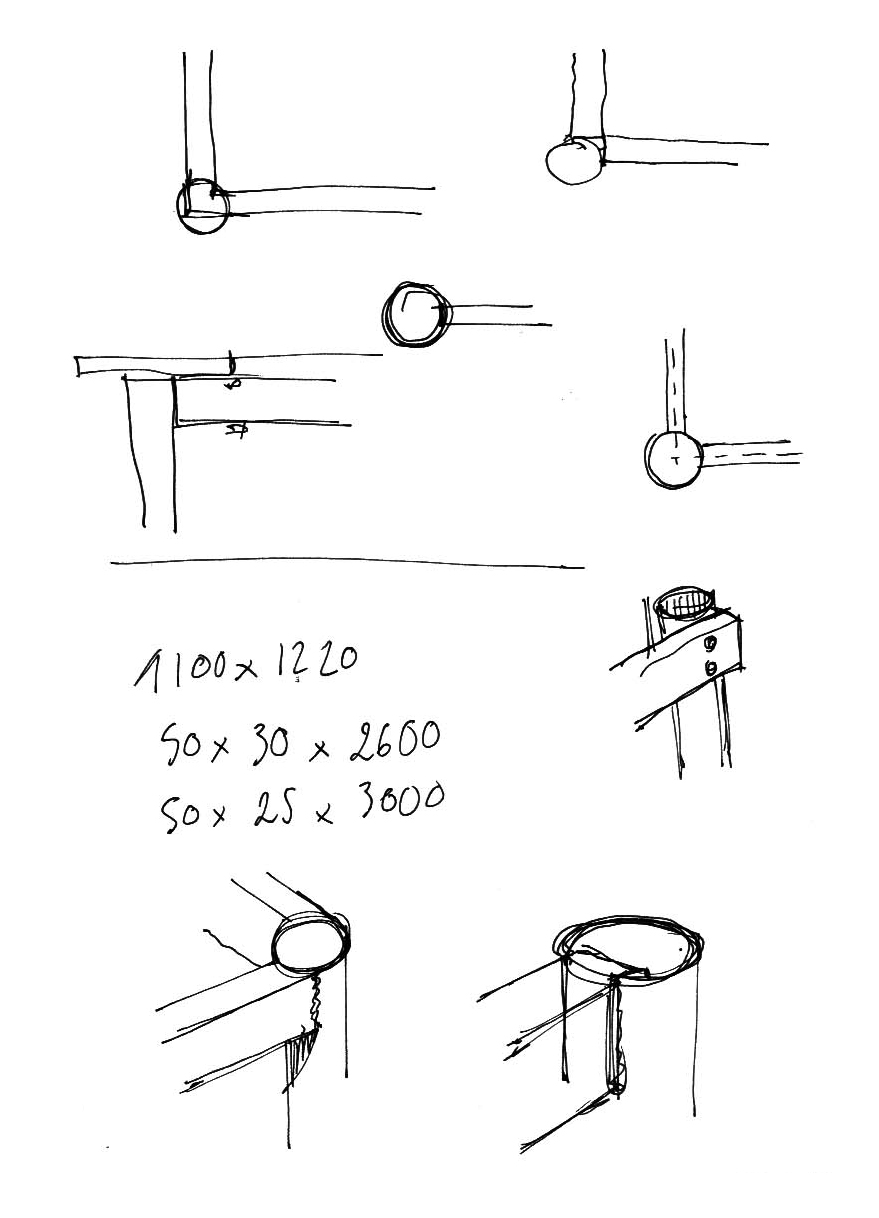 1100 x 1220
50 x 30 x 2600
50 x 25 x 3000